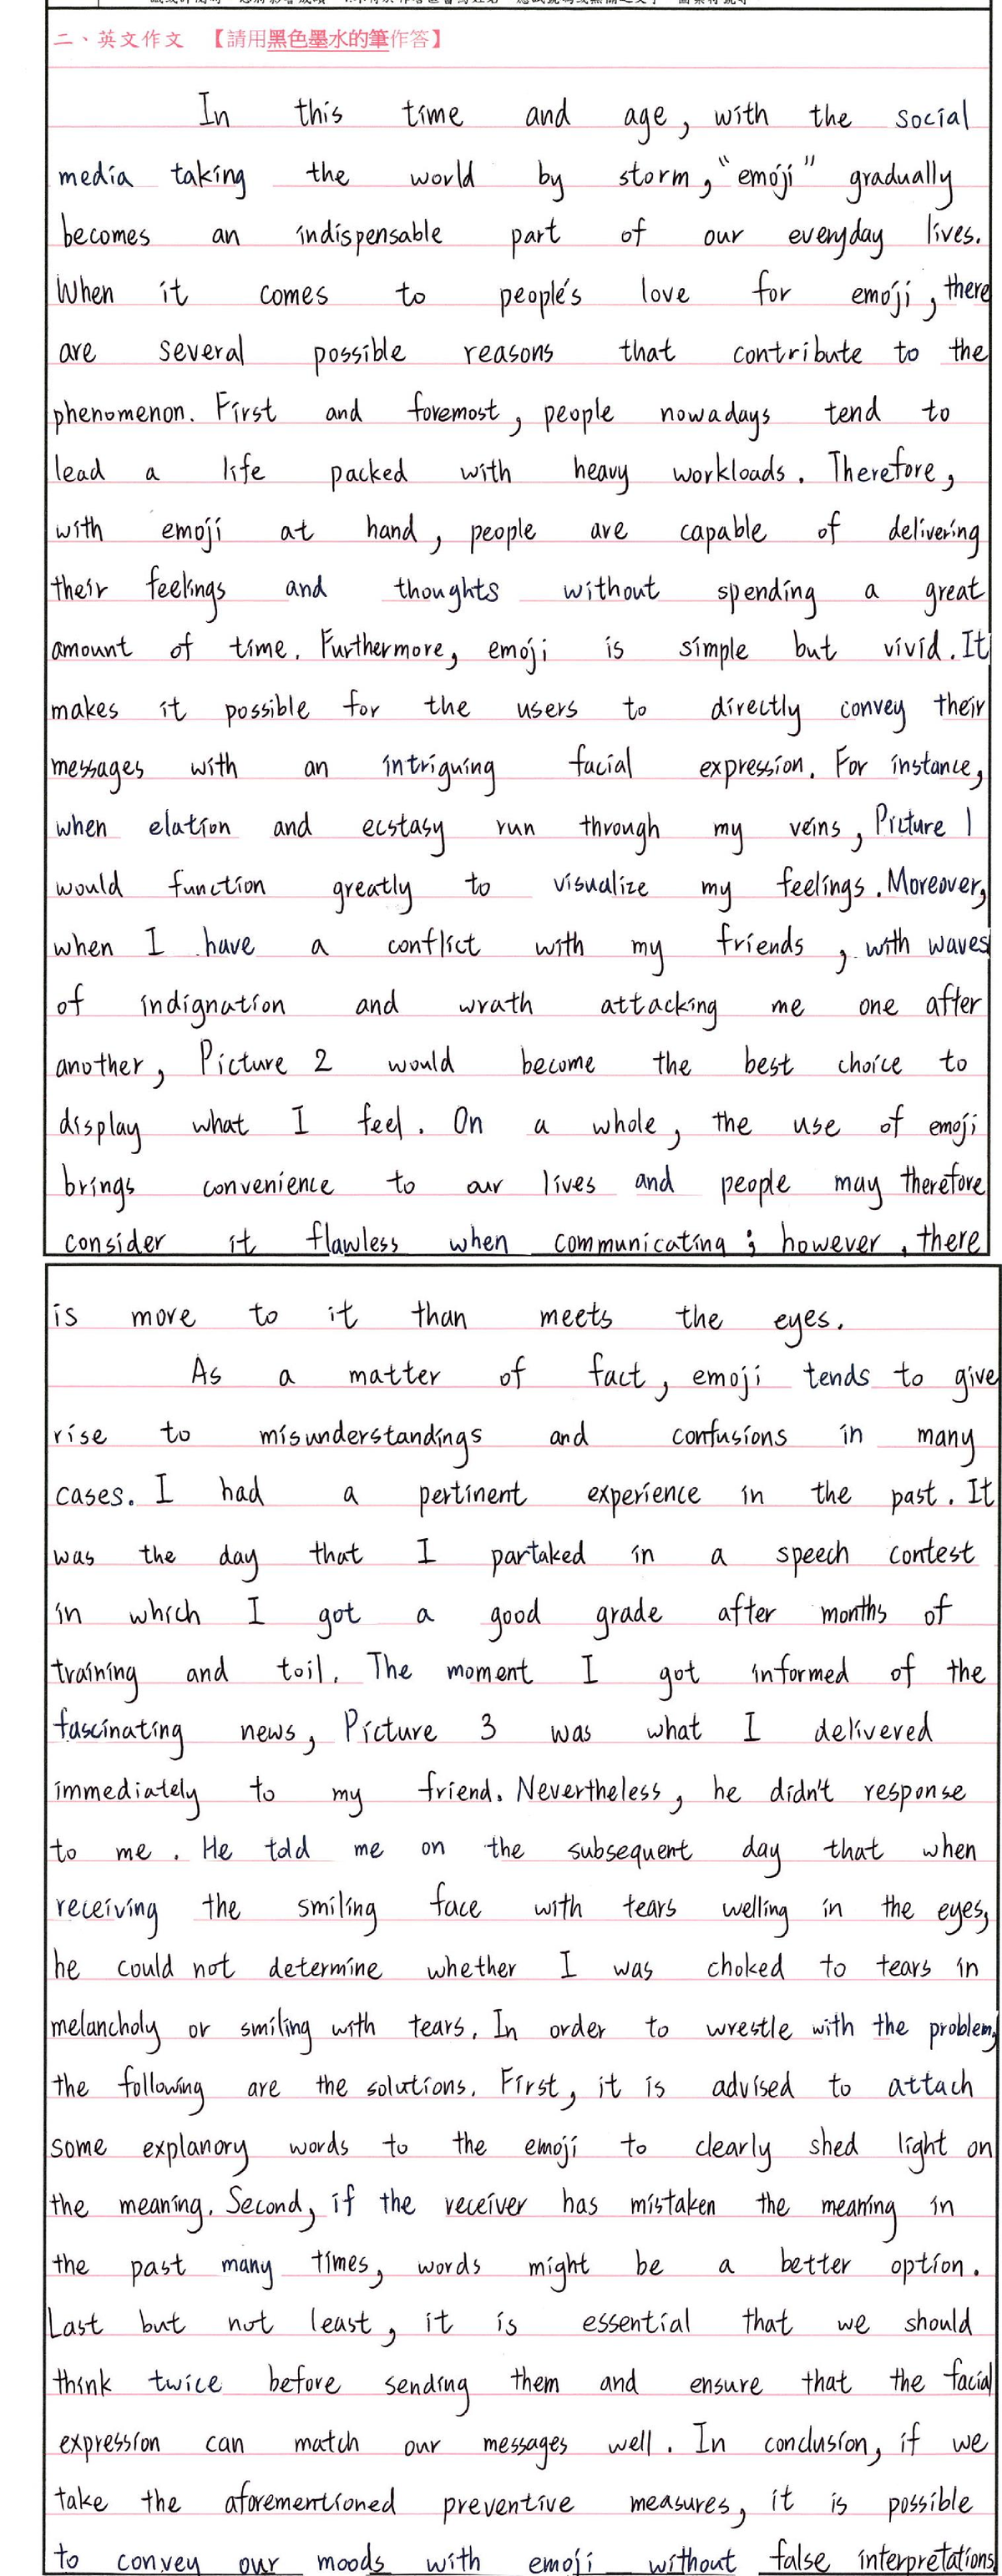 二、英文作文 【請用黑色墨水的筆作答】
In this time and age, with the social
media taking the world by storm, "emoji" gradually
becomes an indispensable part of our everyday lives.
When it comes to people's love for emoji, there
are several possible reasons that contribute to the
phenomenon. First and foremost, people nowadays tend to
lead a life packed with heavy workloads. Therefore,
with emoji at hand, people are capable of delivering
their feelings and thoughts without spending a great
amount of time. Furthermore, emoji is simple but vivid. It
makes it possible for the users to directly convey their
messages with an intriguing facial expression. For instance,
when elation and ecstasy run through my veins, Picture 1
would function greatly to visualize my feelings. Moreover,
when I have a conflict with my friends, with waves
of indignation and wrath attacking me one after
another, Picture 2 would become the best choice to
display what I feel. On a whole, the use of emoji
brings convenience to our lives and people may therefore
consider it flawless when communicating; however, there
is more to it than meets the eyes.
As a matter of fact, emoji tends to give
rise to misunderstandings and confusions in many
cases. I had a pertinent experience in the past. It
was the day that I partaked in a speech contest
in which I got a good grade after months of
training and toil. The moment I got informed of the
fascinating news, Picture 3 was what I delivered
immediately to my friend. Nevertheless, he didn't response
to me. He told me on the subsequent day that when
receiving the smiling face with tears welling in the eyes,
he could not determine whether I was choked to tears in
melancholy or smiling with tears. In order to wrestle with the problem,
the following are the solutions. First, it is advised to attach
some explanory words to the emoji to clearly shed light on
the meaning. Second, if the receiver has mistaken the meaning in
the past many times, words might be a better option.
Last but not least, it is essential that we should
think twice before sending them and ensure that the facial
expression can match our messages well. In conclusion, if we
take the aforementioned preventive measures, it is possible
to convey our moods with emoji without false interpretations